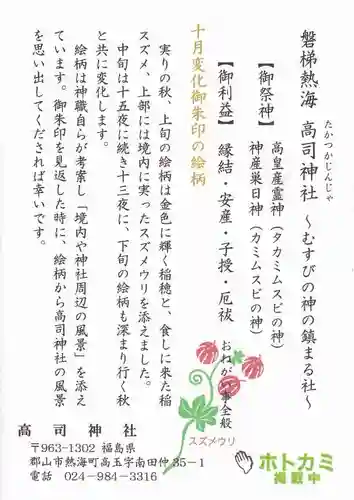 磐梯熱海 高司神社 ～むすびの神の鎮まる社～
たかつかじんじゃ
【御祭神】 高皇産霊神（タカミムスビの神）
神産巣日神（カミムスビの神）
【御利益】 縁結・安産・子授・厄祓
おねがい事全般
十月変化御朱印の絵柄
実りの秋、上旬の絵柄は金色に輝く稲穂と、食しに来た稲
スズメ、上部には境内に実ったスズメウリを添えました。
中旬は十五夜に続き十三夜に、下旬の絵柄も深まり行く秋
と共に変化します。
絵柄は神職自らが考案し「境内や神社周辺の風景」を添え
ています。御朱印を見返した時に、絵柄から高司神社の風景
を思い出してくだされば幸いです。
スズメウリ
高司神社
〒963-1302 福島県
郡山市熱海町高玉字南田仲35－1
電話 024-984-3316
ホトカミ
掲載中